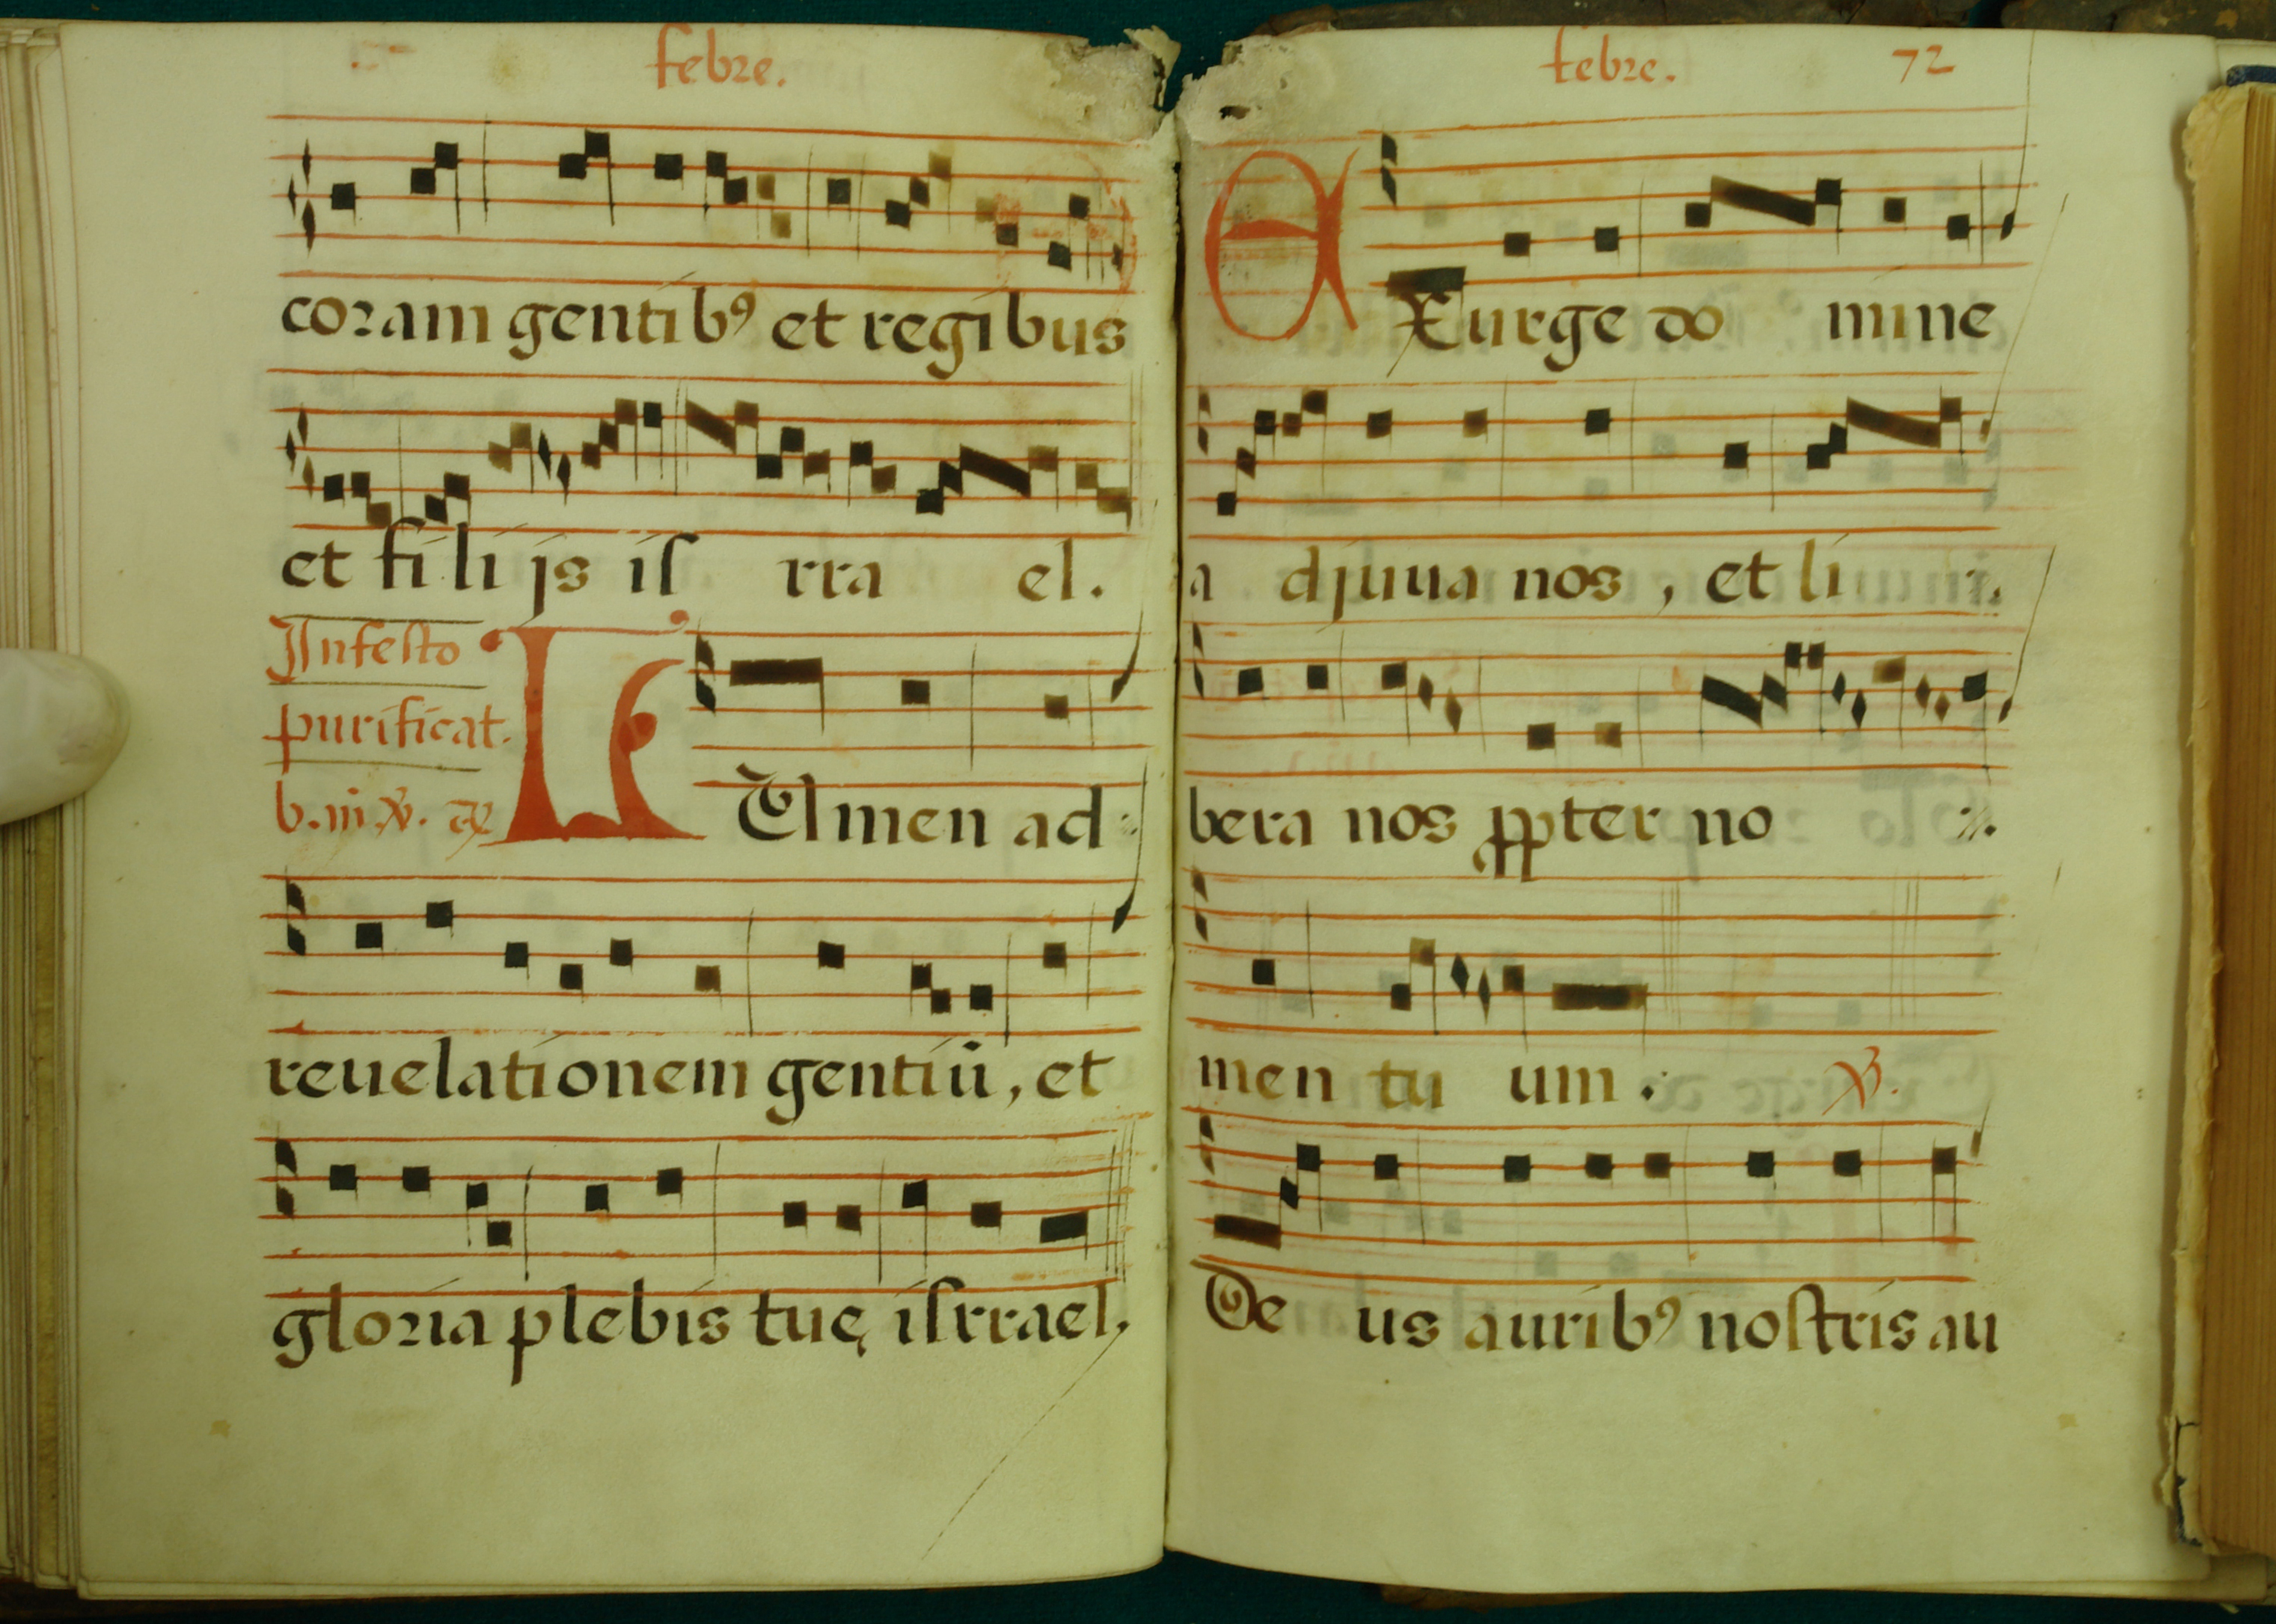 febre.
coram gentibꝰ et regibus
et fi li js iſ rra el.
Infesto
purificat.
b.m.v.
LVmen ad
reuelationem gentiū, et
gloria plebis tuę iſrrael,
febre. 72
EXurge do mine
a djuua nos, et li
bera nos ꝓpter no
men tu um. ℣.
De us auribꝰ nostris au